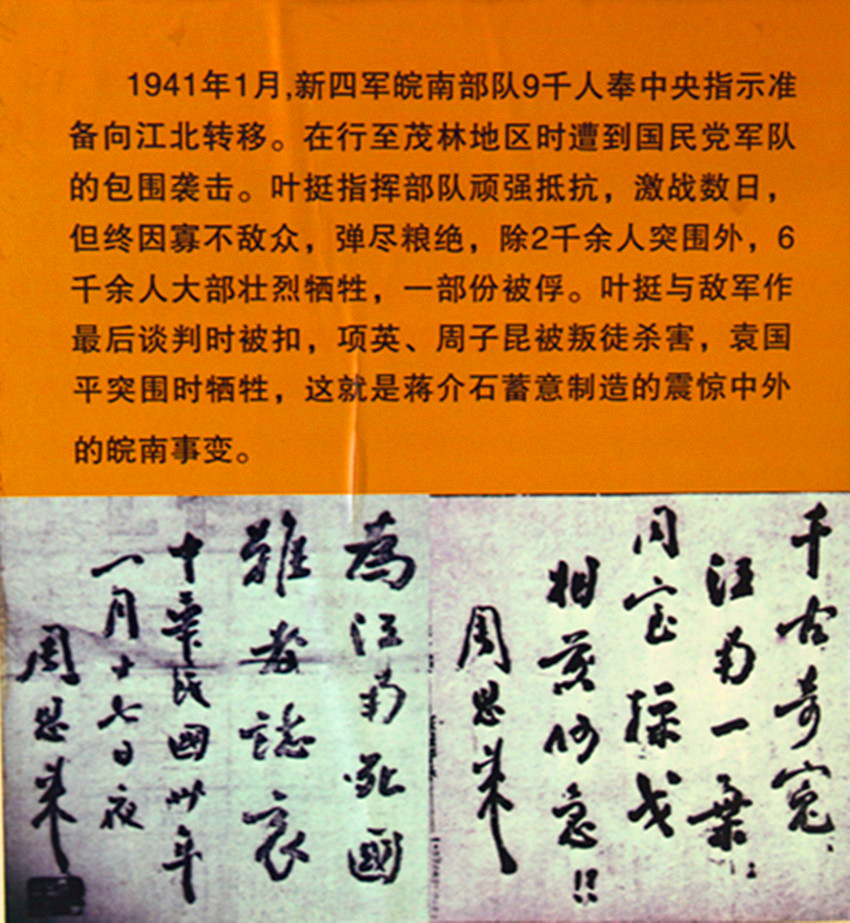 1941年1月,新四军皖南部队9千人奉中央指示准
备向江北转移。在行至茂林地区时遭到国民党军队
的包围袭击。叶挺指挥部队顽强抵抗，激战数日，
但终因寡不敌众，弹尽粮绝，除2千余人突围外，6
千余人大部壮烈牺牲，一部份被俘。叶挺与敌军作
最后谈判时被扣，项英、周子昆被叛徒杀害，袁国
平突围时牺牲，这就是蒋介石蓄意制造的震惊中外
的皖南事变。
千古奇冤、
江南一葉;
同室操戈
相煎何急!?
周恩来
為江南死國
難者誌哀
中華民國卅年
一月十七日夜
周恩来